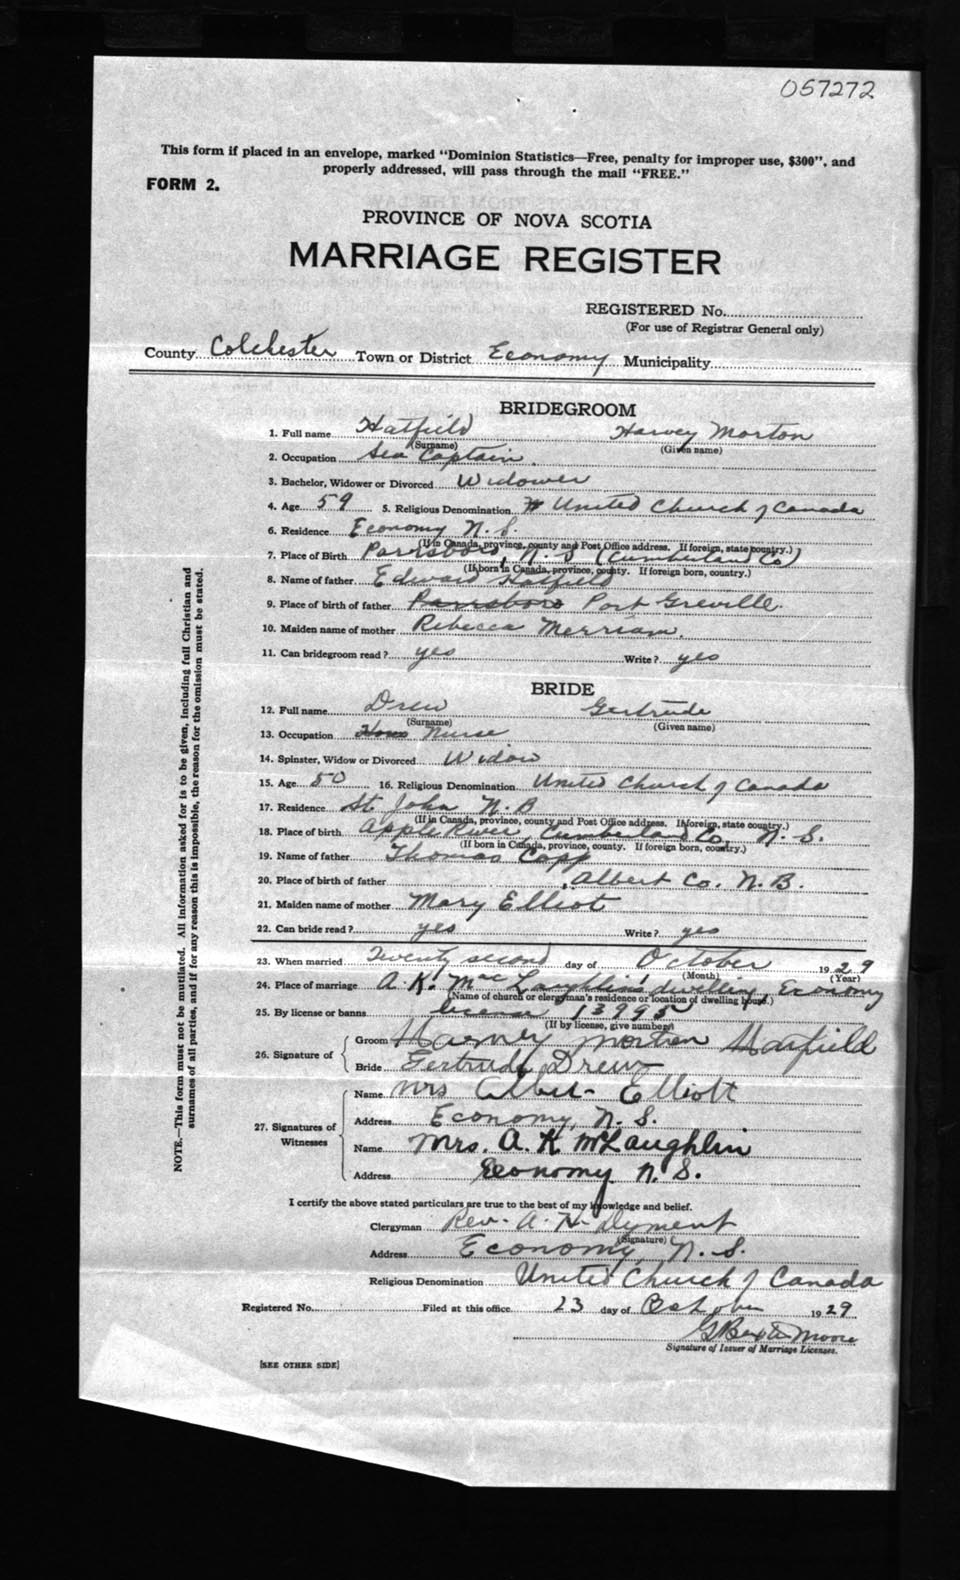 057272
This form if placed in an envelope, marked "Dominion Statistics—Free, penalty for improper use, $300", and
properly addressed, will pass through the mail "FREE."
FORM 2.
PROVINCE OF NOVA SCOTIA
MARRIAGE REGISTER
REGISTERED No.
(For use of Registrar General only)
County Colchester Town or District Economy Municipality
BRIDEGROOM
1. Full name Hatfield Harvey Morton
(Surname) (Given name)
2. Occupation Sea Captain.
3. Bachelor, Widower or Divorced Widower
4. Age 59 5. Religious Denomination United Church of Canada
6. Residence Economy N.S.
(If in Canada, province, county and Post Office address. If foreign, state country.)
7. Place of Birth Parrsboro, N.S (Cumberland Co)
(If born in Canada, province, county. If foreign born, country.)
8. Name of father Edward Hatfield
9. Place of birth of father Parrsboro Port Greville.
10. Maiden name of mother Rebecca Merriam.
11. Can bridegroom read? yes Write? yes
BRIDE
12. Full name Drew Gertrude
(Surname) (Given name)
13. Occupation Nurse
14. Spinster, Widow or Divorced Widow
15. Age 50 16. Religious Denomination United Church of Canada
17. Residence St. John N.B
(If in Canada, province, county and Post Office address. If foreign, state country.)
18. Place of birth Apple River, Cumberland Co. N.S.
(If born in Canada, province, county. If foreign born, country.)
19. Name of father Thomas Copp
20. Place of birth of father Albert Co. N.B.
21. Maiden name of mother Mary Elliot
22. Can bride read? yes Write? yes
23. When married Twenty second day of October 1929
(Month) (Year)
24. Place of marriage A.K. MacLaughlin's dwelling, Economy
(Name of church or clergyman's residence or location of dwelling house.)
25. By license or banns license 13995
(If by license, give number)
26. Signature of
Groom Harvey Morton Hatfield
Bride Gertrude Drew
27. Signatures of Witnesses
Name Mrs Albert Elliott
Address Economy, N.S.
Name Mrs. A. K McLaughlin
Address Economy N.S.
I certify the above stated particulars are true to the best of my knowledge and belief.
Clergyman Rev. A. H. Dyment
(Signature)
Address Economy, N.S.
Religious Denomination United Church of Canada
Registered No. Filed at this office 23 day of October 1929
G Baxter Moore
Signature of Issuer of Marriage Licenses.
[SEE OTHER SIDE]
NOTE.—This form must not be mutilated. All information asked for is to be given, including full Christian and
surnames of all parties, and if for any reason this is impossible, the reason for the omission must be stated.